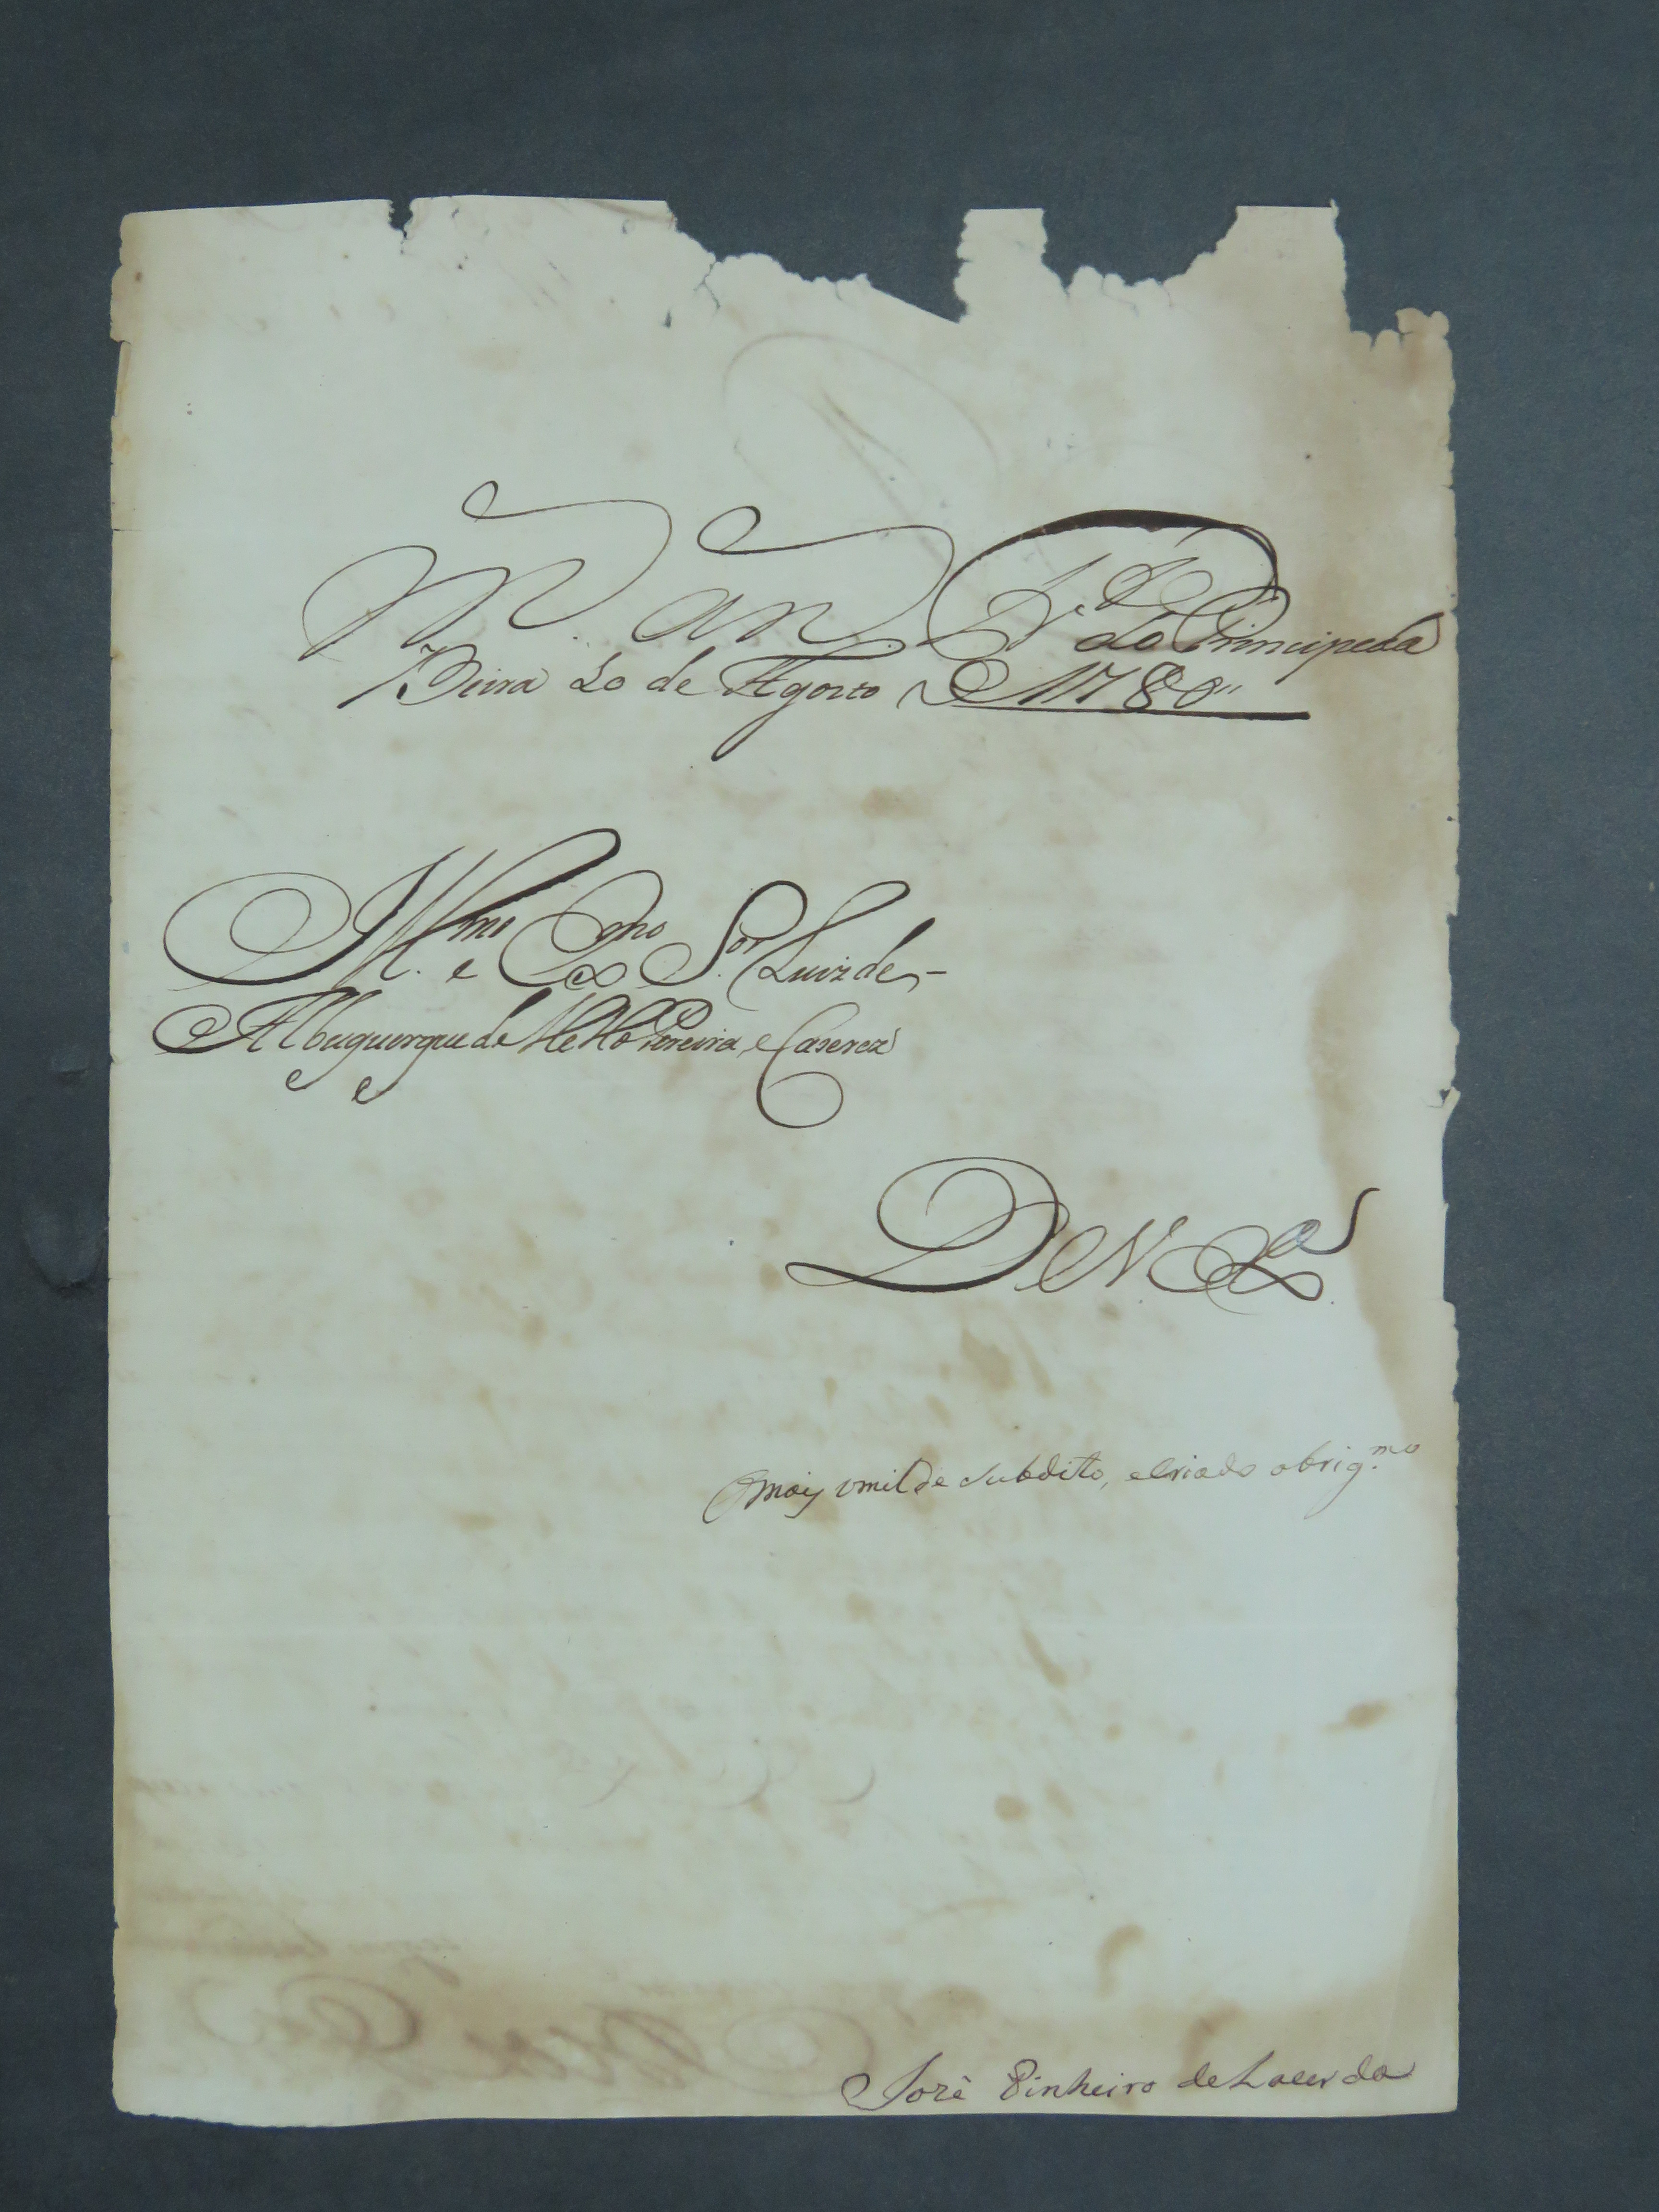 m. an. F.te do Principe da
Beira 20 de Agosto de 1780"
Ill.mo e Ex.mo S.or Luiz de
Albuquerque de Mello Pereira, e Caserez
De V. Ex.ª
O mais umilde Subdito, e Criado obrig.mo
Jozê Pinheiro de Lacerda